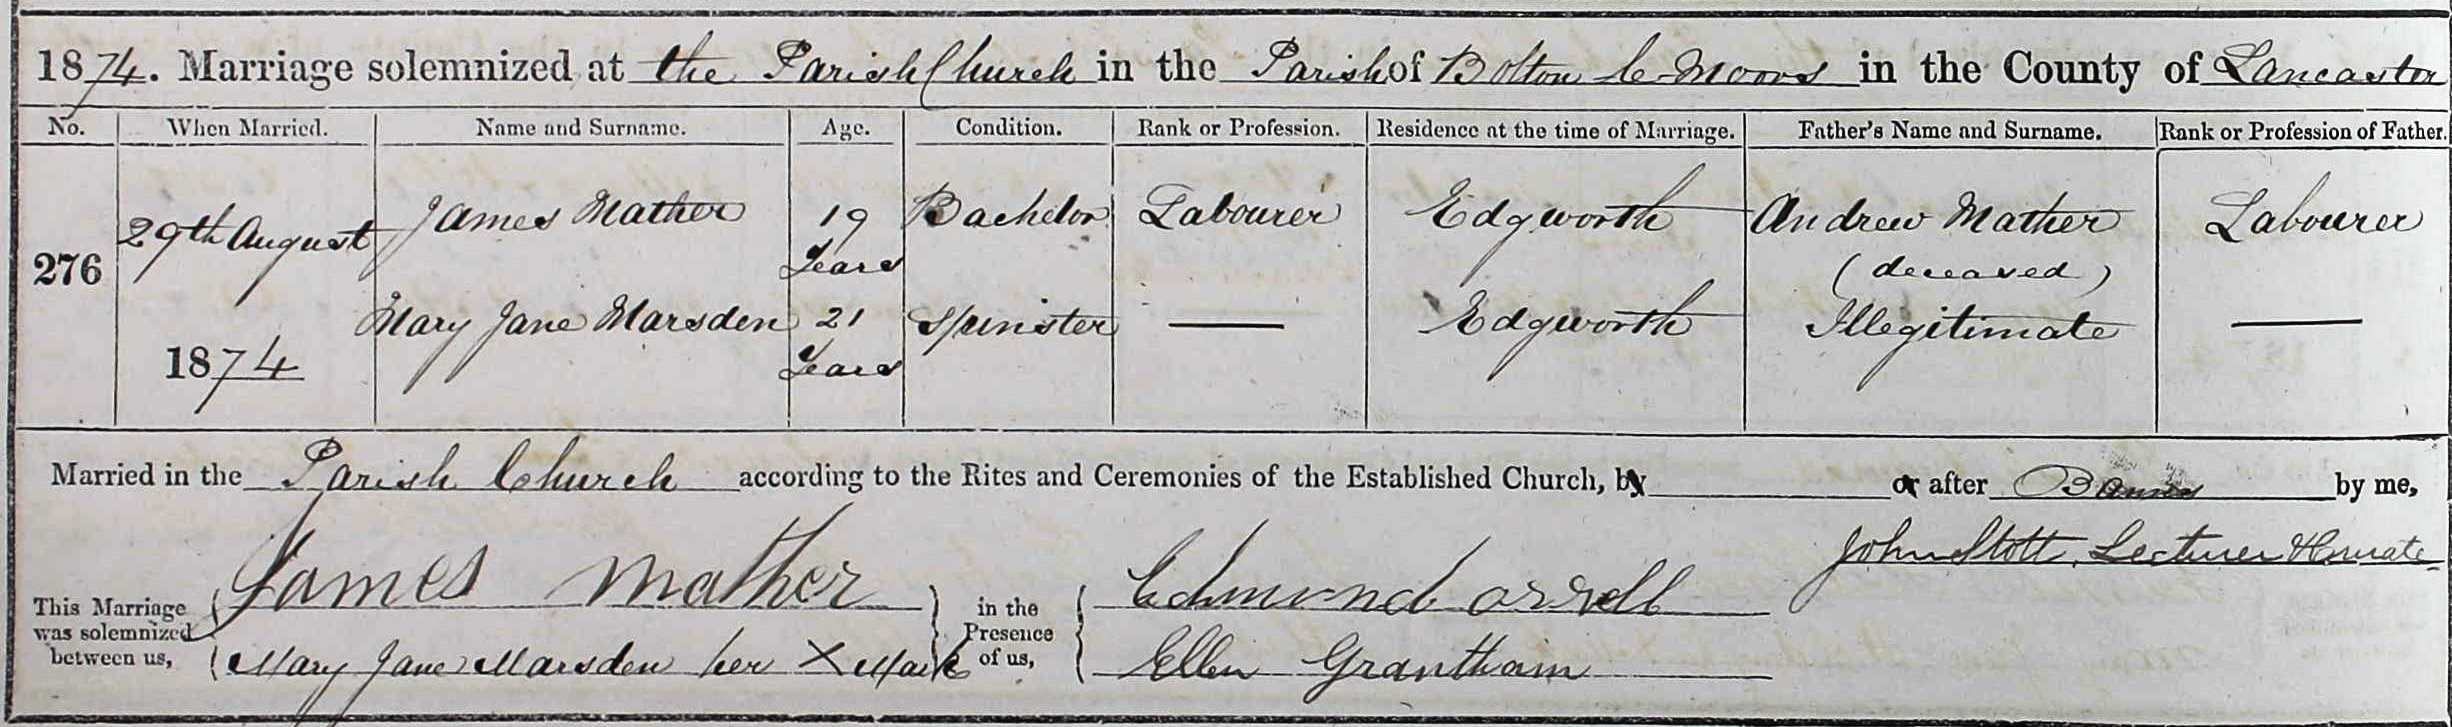 1874. Marriage solemnized at the Parish Church in the Parish of Bolton le Moors in the County of Lancaster
No. When Married. Name and Surname. Age. Condition. Rank or Profession. Residence at the time of Marriage. Father's Name and Surname. Rank or Profession of Father.
276 29th August 1874 James Mather 19 Years Bachelor Labourer Edgworth Andrew Mather (deceased) Labourer
Mary Jane Marsden 21 Years Spinster — Edgworth Illegitimate —
Married in the Parish Church according to the Rites and Ceremonies of the Established Church, by or after Banns by me,
John Stott, Lecturer & Curate
This Marriage was solemnized between us, James Mather in the Presence of us, Edmund Orrell
Mary Jane Marsden her X Mark Ellen Grantham